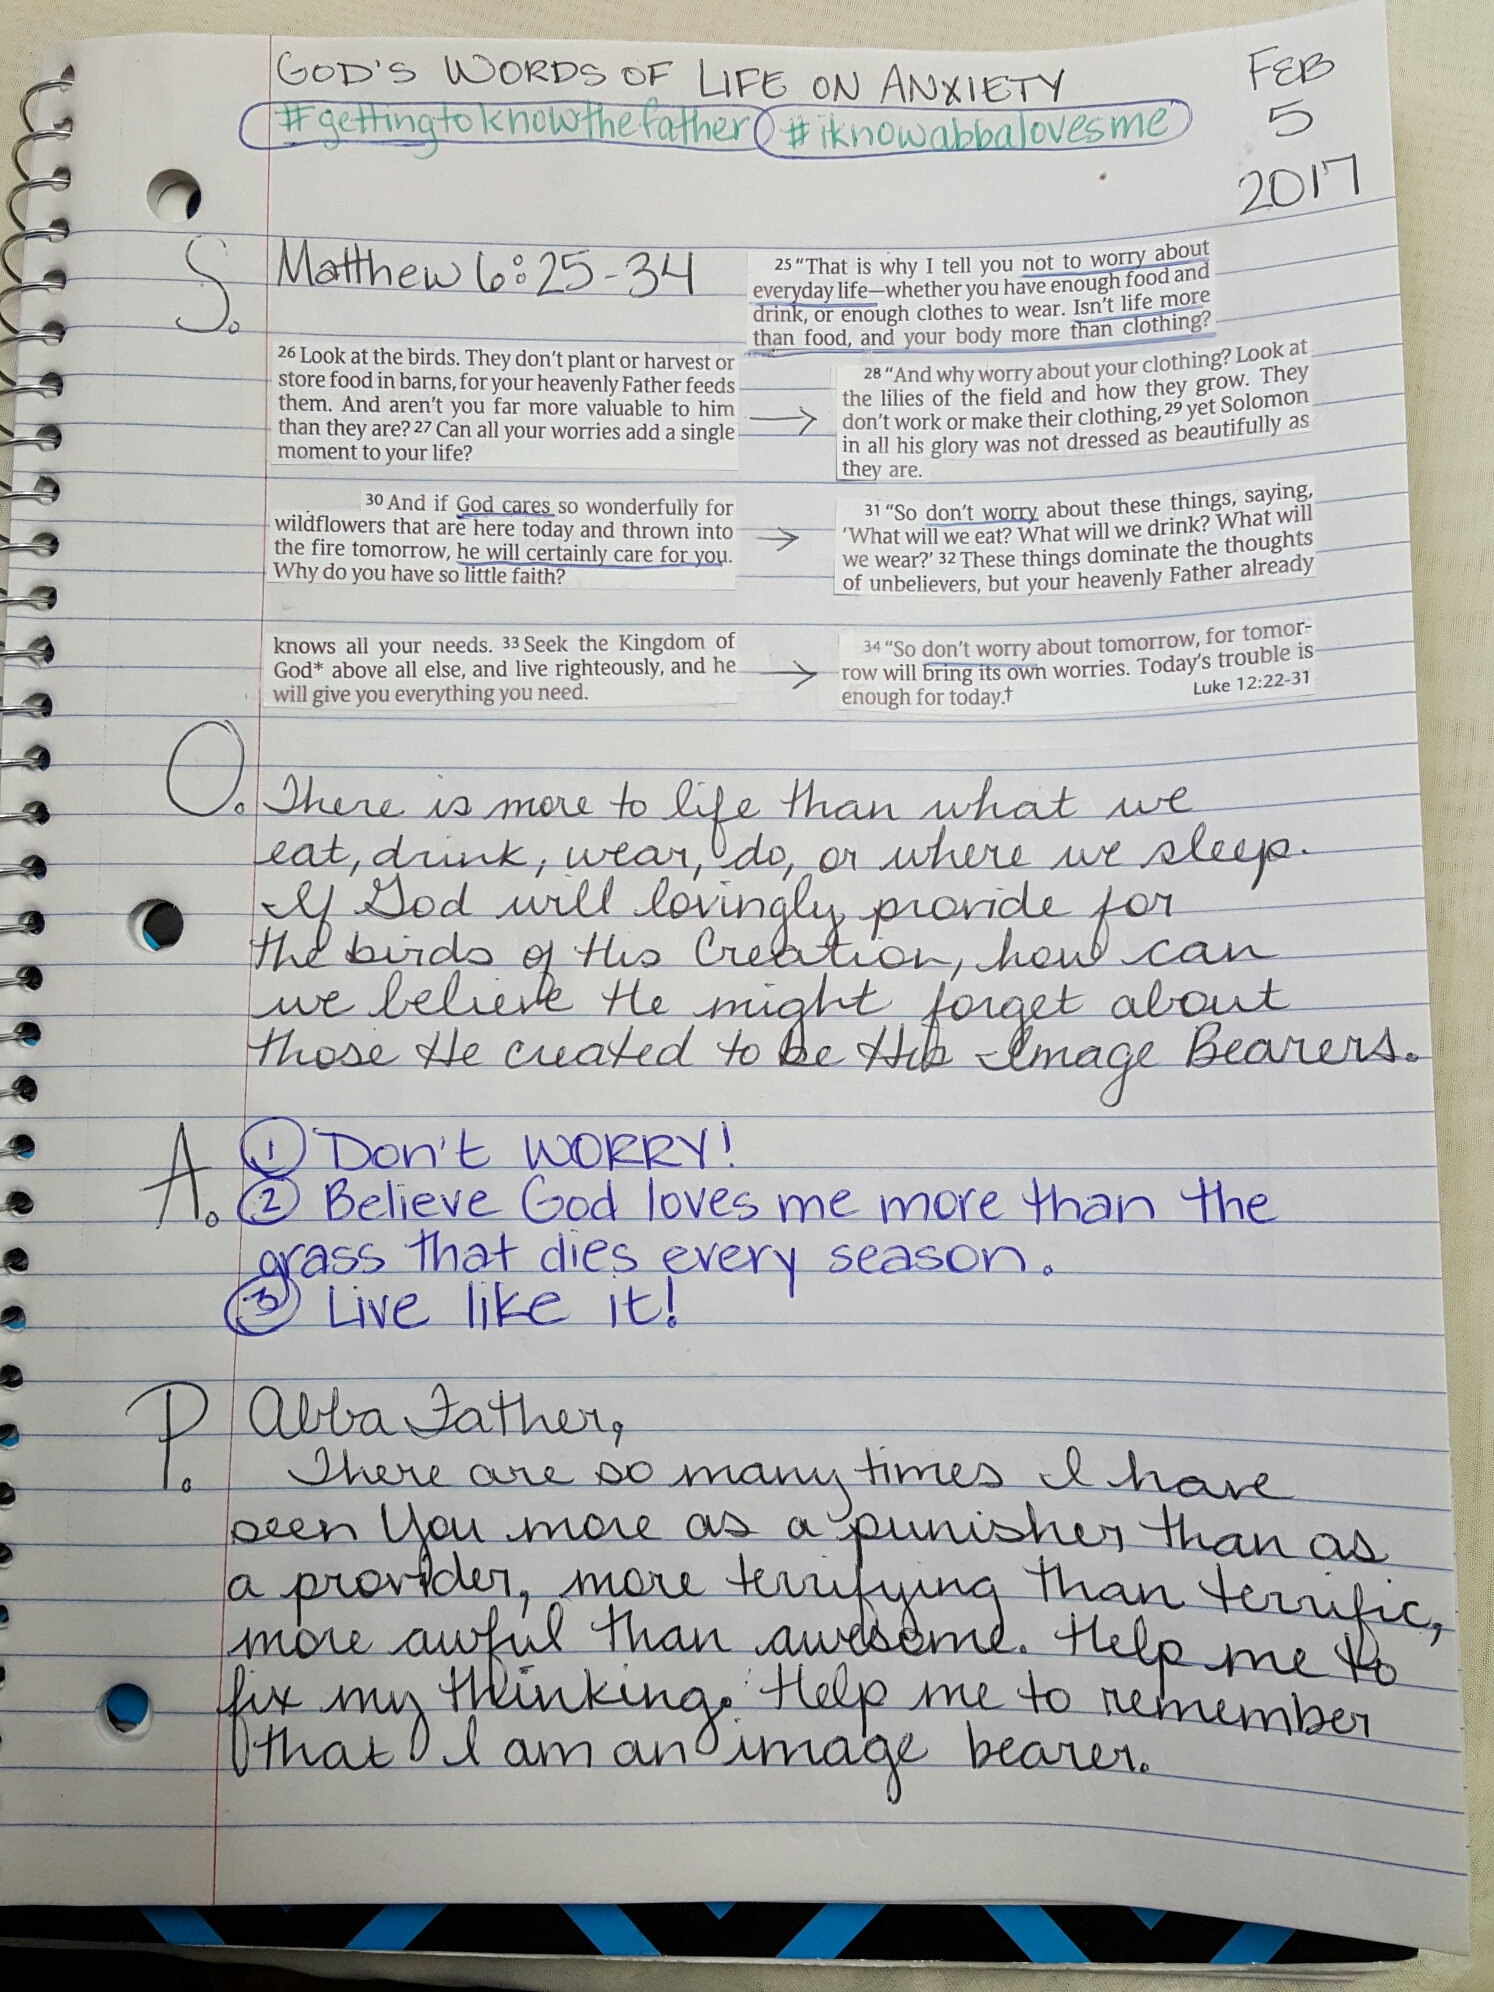 GOD'S WORDS OF LIFE ON ANXIETY
#gettingtoknowthefather #iknowabbalovesme
FEB
5
2017
S. Matthew 6:25-34
25 "That is why I tell you not to worry about
everyday life—whether you have enough food and
drink, or enough clothes to wear. Isn't life more
than food, and your body more than clothing?
26 Look at the birds. They don't plant or harvest or
store food in barns, for your heavenly Father feeds
them. And aren't you far more valuable to him
than they are? 27 Can all your worries add a single
moment to your life?
→
28 "And why worry about your clothing? Look at
the lilies of the field and how they grow. They
don't work or make their clothing, 29 yet Solomon
in all his glory was not dressed as beautifully as
they are.
30 And if God cares so wonderfully for
wildflowers that are here today and thrown into
the fire tomorrow, he will certainly care for you.
Why do you have so little faith?
→
31 "So don't worry about these things, saying,
'What will we eat? What will we drink? What will
we wear?' 32 These things dominate the thoughts
of unbelievers, but your heavenly Father already
knows all your needs. 33 Seek the Kingdom of
God* above all else, and live righteously, and he
will give you everything you need.
→
34 "So don't worry about tomorrow, for tomor-
row will bring its own worries. Today's trouble is
enough for today.†
Luke 12:22-31
O. There is more to life than what we
eat, drink, wear, do, or where we sleep.
If God will lovingly provide for
the birds of His Creation, how can
we believe He might forget about
those He created to be His Image Bearers.
A. 1 Don't WORRY!
2 Believe God loves me more than the
grass that dies every season.
3 Live like it!
P. Abba Father,
There are so many times I have
seen You more as a punisher than as
a provider, more terrifying than terrific,
more awful than awesome. Help me to
fix my thinking. Help me to remember
that I am an image bearer.